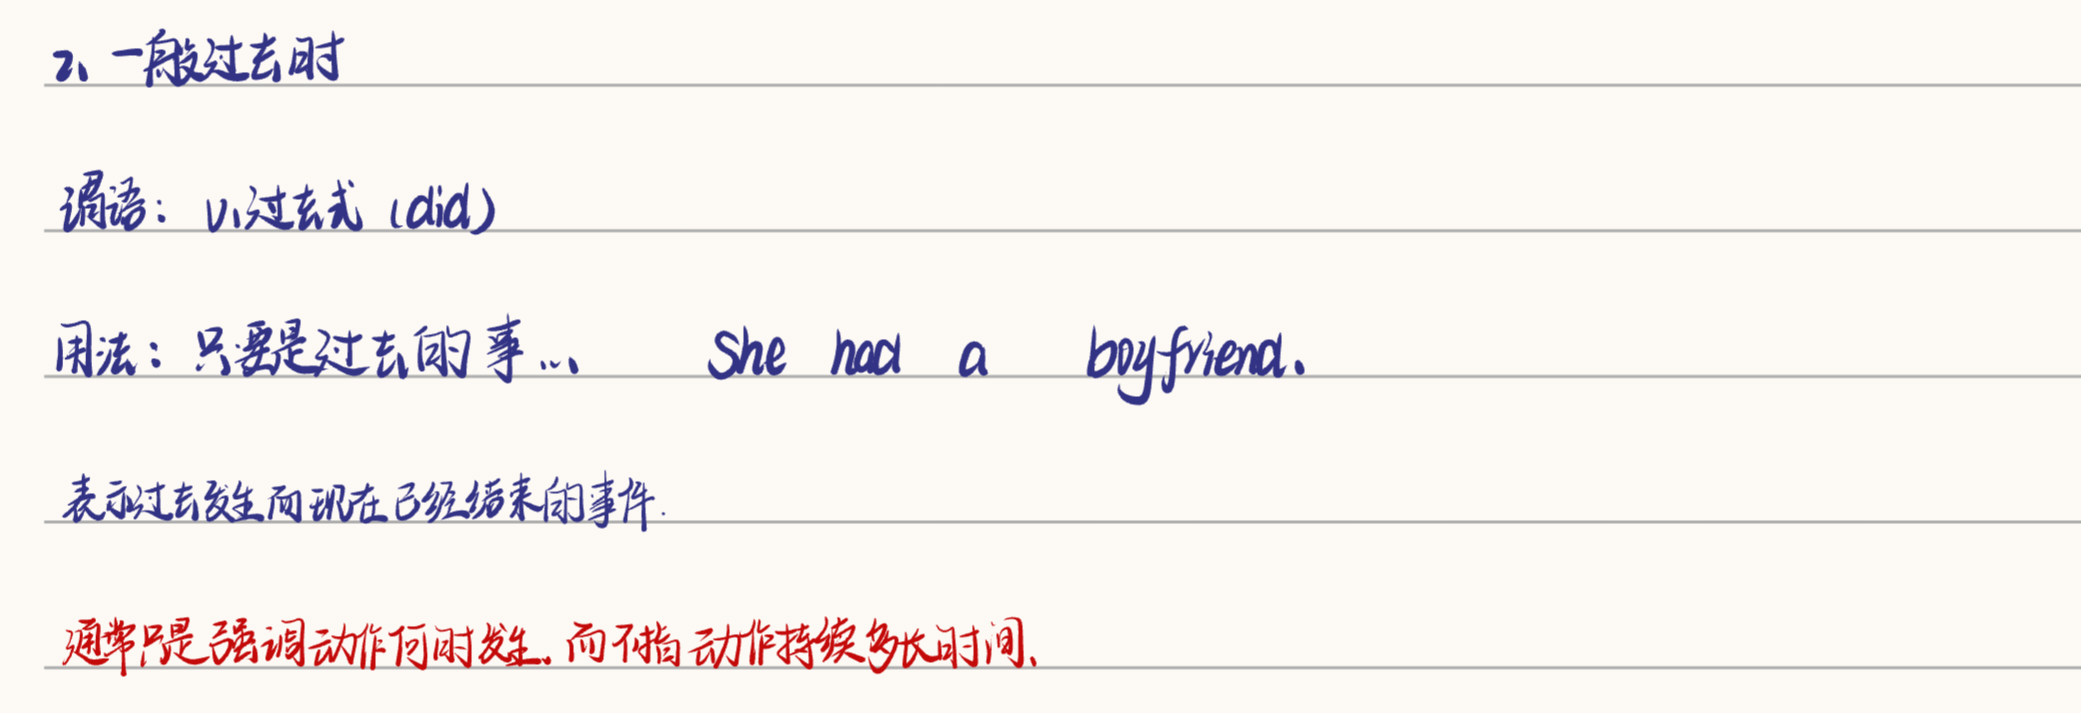 2、一般过去时
谓语：v.过去式（did）
用法：只要是过去的事... She had a boyfriend.
表示过去发生而现在已经结束的事件.
通常只是强调动作何时发生.而不指动作持续多长时间.